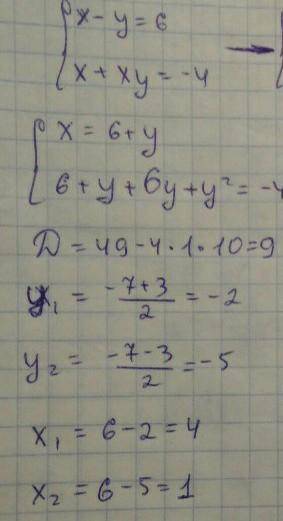 { x - y = 6
{ x + xy = -4 →
{ x = 6 + y
{ 6 + y + 6y + y² = -4
D = 49 - 4 · 1 · 10 = 9
y₁ = (-7+3)/2 = -2
y₂ = (-7-3)/2 = -5
x₁ = 6 - 2 = 4
x₂ = 6 - 5 = 1